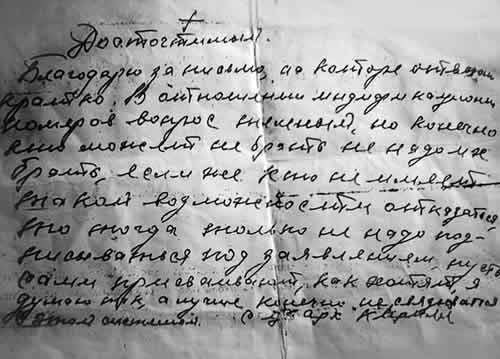 †
Досточтимый.
Благодарю за письмо, на которе отвечаю
кратко. В отношении индификационн
номеров вопрос сложный, но конечно
кто может не брать не надо их
брать, если же кто не имеет
такой возможности отказатся
то тогда только не надо под-
писываться под заявлением, пусть
сами присваивают, как хотят я
думаю так, а лучше конечно не связыватся
с этой системой. С ув. арх Кирилл